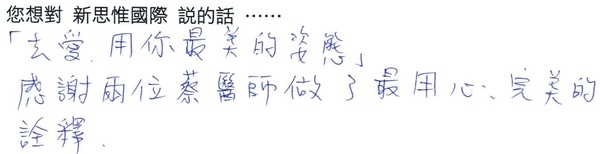 您想對 新思惟國際 說的話 ⋯⋯
「去愛, 用你最美的姿態」
感謝兩位蔡醫師做了最用心、完美的
詮釋.